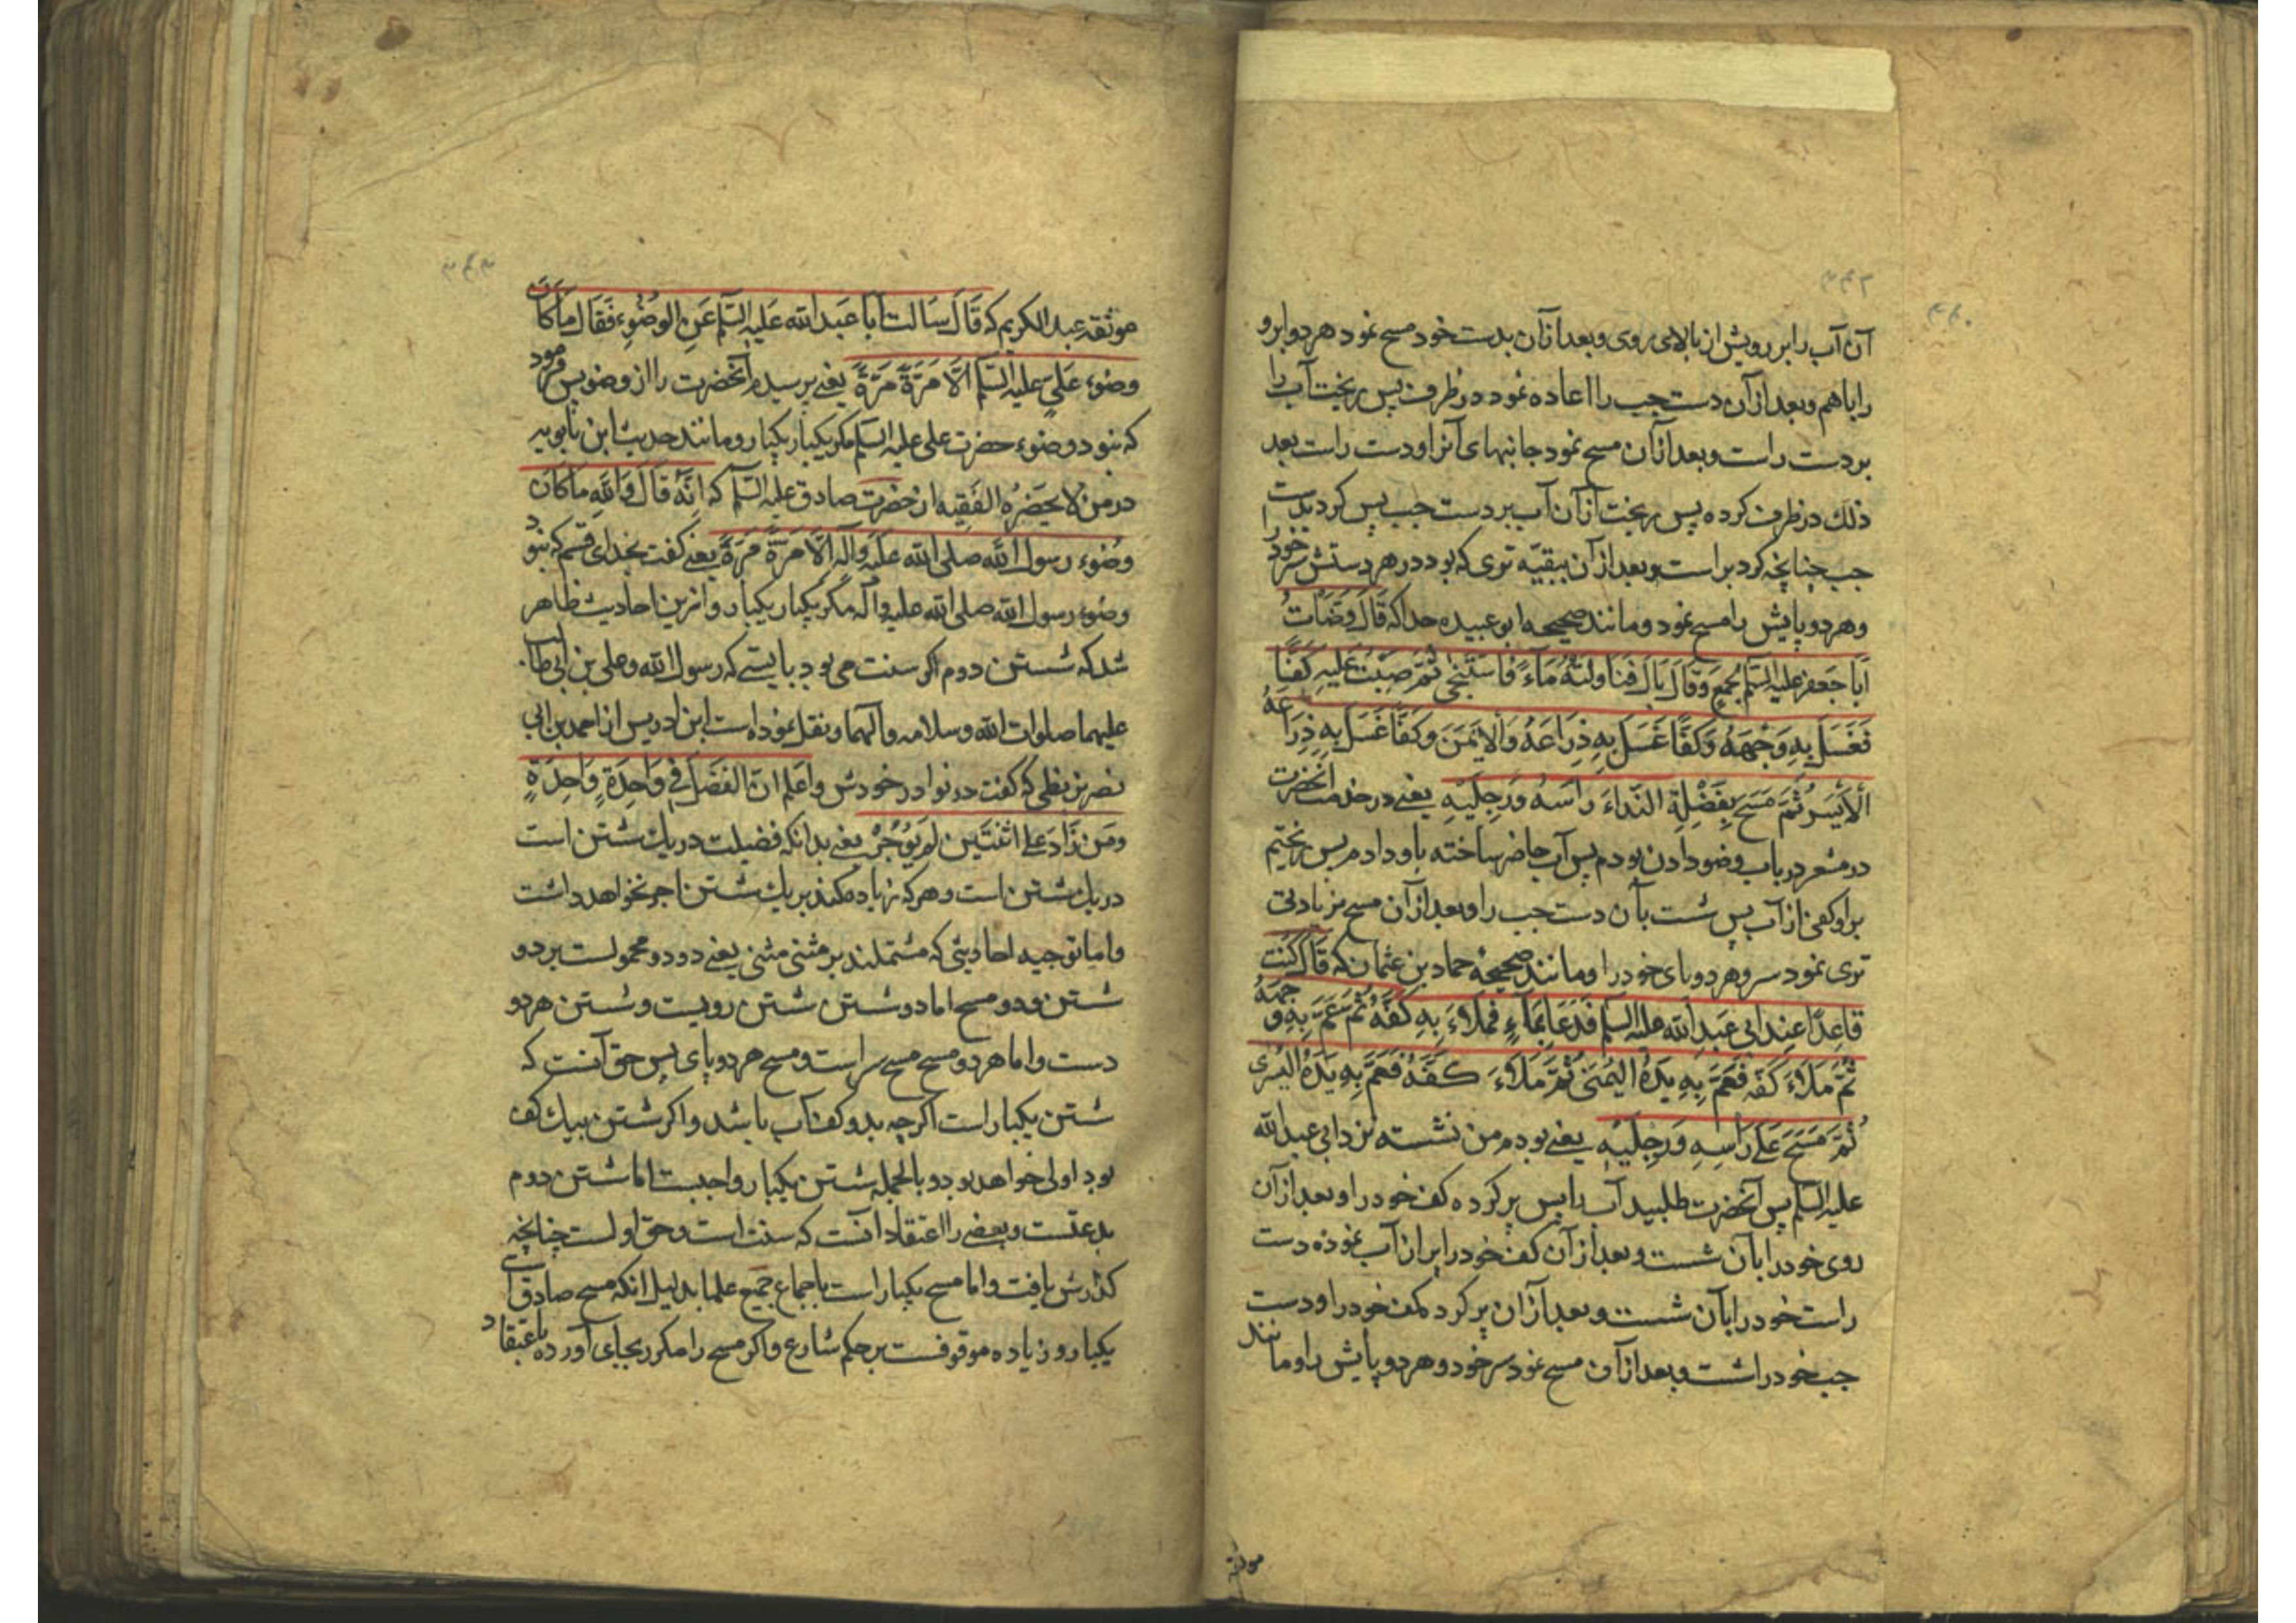 آن آب را بر رویش از بالای روی و بعد از آن بدست خود مسح نمود هر دو ابرو
را باهم و بعد از آن دست چپ را اعاده نمود در ظرف پس ریخت آب را
بر دست راست و بعد از آن مسح نمود جانبهای آنرا و دست راست بعد
ذلك در ظرف کرده پس ریخت از آن آب بر دست چپ پس کرد بدست
چپ چنانچه کرد براست و بعد از آن ببقیّه تری که بود در هر دستش سر خود را
و هر دو پایش را مسح نمود و مانند صحیحه ابو عبیده حذا که قَالَ وَضَّأتُ
اَبَا جَعفر علیه السّلم بجمعٍ وَ قَالَ بَالَ فَنَاوَلتُهُ مَآءً فَاستَنجی ثُمَّ صبَبتُ علیهِ کَفًّا
فَغَسَلَ بِهِ وَجْهَهُ وَکَفًّا غَسَلَ بِهِ ذِرَاعَهُ وَالاَیمَنَ وَکَفًّا غَسَلَ بِهِ ذِرَاعَهُ
الاَیسَرَ ثُمَّ مَسَحَ بِفَضْلِةِ النّداءَ رأسَهُ وَرِجلَیْهِ یعنے در خدمت آنحضرت
در مشعر در باب وضو دادن بودم پس آب حاضر ساخته باو دادم پس ریختم
بر او کفی از آب پس شست بآن دست چپ را و بعد از آن مسح بزیادتی
تری نمود سر و هر دو پای خود را و مانند صحیحهٔ حماد بن عثمان که قَالَ کُنتُ
قَاعِدًا عِندَ ابی عَبدِ الله علیه السلم فَدَعَا بِمَآءٍ فَمَلاءَ بِهِ کَفَّهُ ثُمَّ عَمَّ بِهِ وَجهَهُ
ثُمَّ مَلاءَ کَفّه فَعَمَّ بِهِ یَدَهُ الیُمنیٰ ثُمَّ مَلاءَ کَفَّهُ فَعَمَّ بِهِ یَدَهُ الیُسریٰ
ثُمَّ مَسَحَ عَلیٰ رَاسِهِ وَرِجلَیْهِ یعنے بودم من نشسته نزد ابی عبد الله
علیه السلم پس آنحضرت طلبید آب را پس پر کرده کف خود را و بعد از آن
روی خود را بآن شست و بعد از آن کف خود را پر از آب نموده دست
راست خود را بآن شست و بعد از آن پر کرد کف خود را و دست
چپ خود را شست و بعد از آن مسح نمود سر خود و هر دو پایش را و مانند
موثقه
موثقه عبد الکریم که قَالَ سَالت اَبَا عَبدالله عَلیهِ السّلم عَنِ الوضُوءِ فَقَالَ مَا کَانَ
وضوء عَلیٍ علیه السّلم اِلَّا مَرَّةً مَرَّةً یعنے پرسیدم آنحضرت را از وضو پس فرمود
که نبود وضوء حضرت علی علیه السلم مکر یکبار یکبار و مانند حدیث ابن بابویه
در من لا یحضَرُه الفَقِیه از حضرت صادق علیه السّلم که اِنَّهُ قَالَ وَاللّٰهِ مَا کَانَ
وضُوء رسول الله صلی الله علَیه وآله الَّا مَرَّةً مَرَةً یعنے کفت بخدای قسم که نبود
وضوء رسول الله صلی الله علیه وآله مکر یکبار یکبار و از این احادیث ظاهر
شد که شستن دوم اکر سنت می بود بایستے که رسول الله و علی بن ابی طالب
علیهما صلوات الله وسلامه وآلهما و نقل نموده است ابن ادریس از احمد بن ابی
نصر بزنطی که کفت در نوادر خودش واعلم انّ الفَضلَ فی وَاحِدَةٍ وَاحِدَةٍ
ومَن زَادَ علی اثنَتَینِ لَم یُؤجَر یعنے بدانکه فضیلت در یك شستن است
در یك شستن است و هر که زیاده کند بر یك شستن اجر نخواهد داشت
و اما توجیه احادیثی که مشتملند بر مثنی مثنی یعنے دو دو محمولست بر دو
شستن و دو مسح اما دو شستن شستن رویست و شستن هر دو
دست و اما هر دو مسح مسح سر است و مسح هر دو پای پس حق آنست که
شستن یکبار است اکر چه بدو کف آب باشد و اکر شستن بیك کف
بود اولی خواهد بود و بالجمله شستن یکبار واجبست اما شستن دوم
بدعتست و بعضے را اعتقاد آنست که سنت است و حق اولست چنانچه
کذارش یافت و اما مسح یکبار است باجماع جمیع علما بدلیل انکه مسح صادق است
یکبار و زیاده موقوفست بر حکم شارع و اکر مسح را مکرر بجای آورده باعتقاد